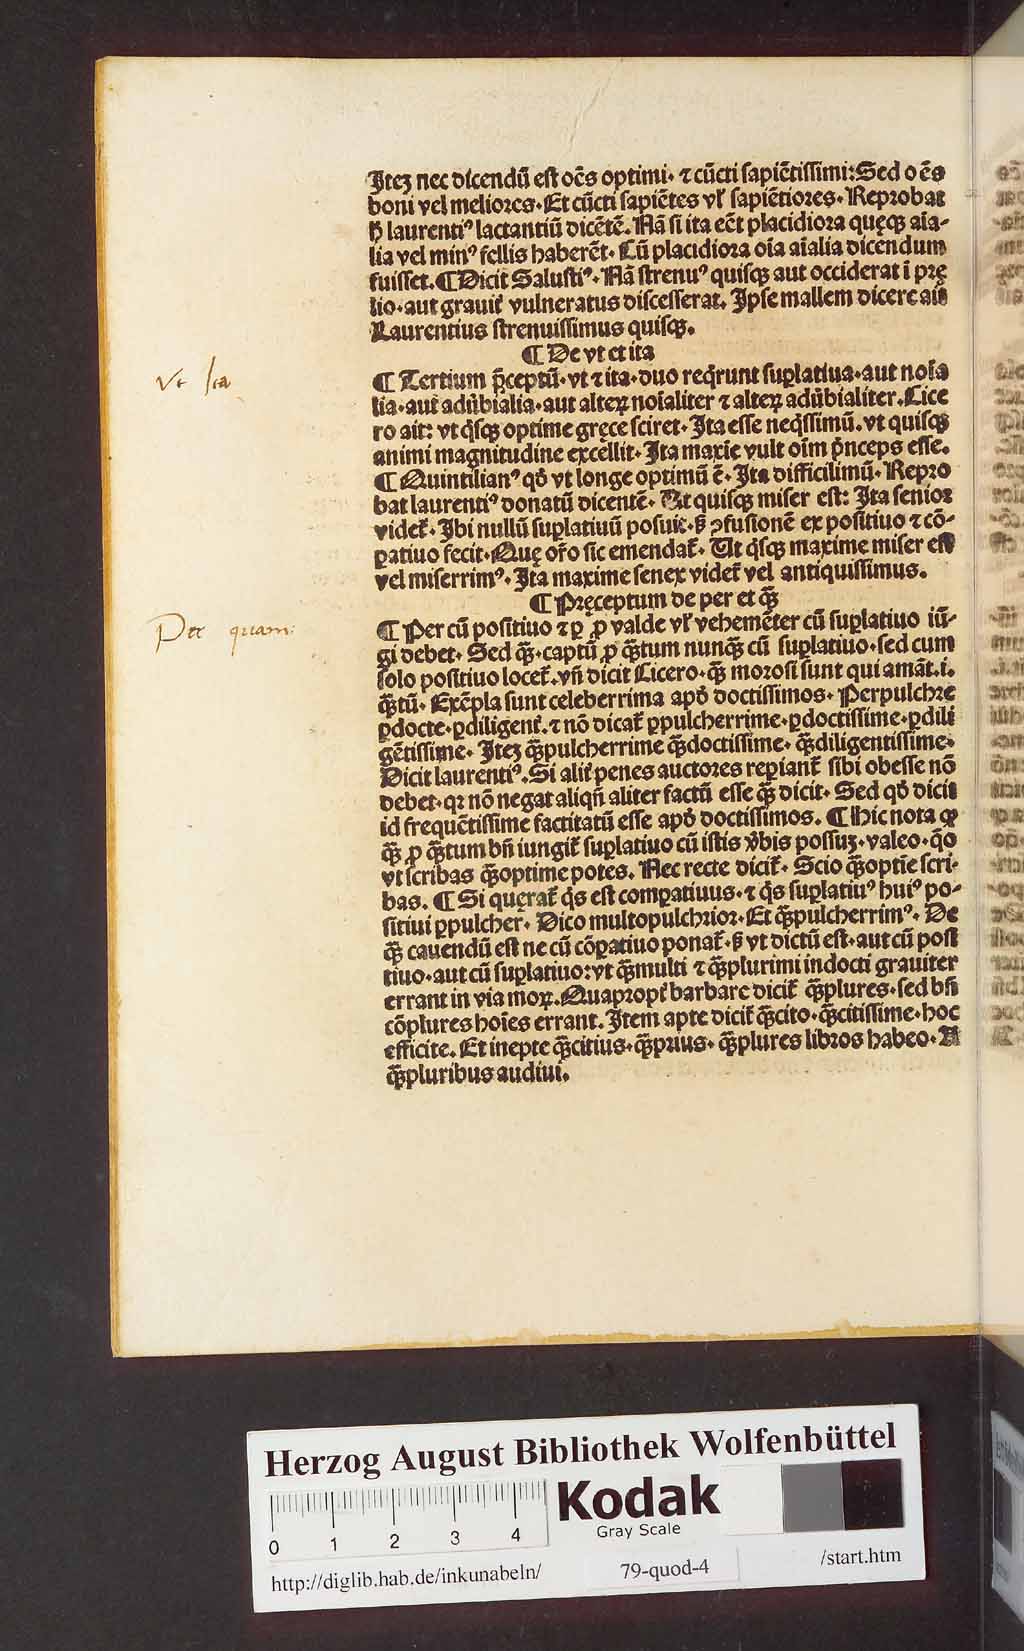 Itez nec dicendū est oēs optimi. ⁊ cūcti sapiētissimi: Sed oēs
boni vel meliores. Et cūcti sapiētes vl' sapiētiores. Reprobat
ħ laurentiꝰ lactantiū dicētē. Nā si ita eēt placidiora quęqꝫ aīa-
lia vel minꝰ fellis haberēt. Cū placidiora oīa aīalia dicendum
fuisset. ¶ Dicit Salustiꝰ. Nā strenuꝰ quisqꝫ aut occiderat ī prę
lio. aut grauit' vulneratus discesserat. Ipse mallem dicere ait
Laurentius strenuissimus quisqꝫ.
¶ De vt et ita
Vt Ita
¶ Tertium p̄ceptū. vt ⁊ ita. duo reqͥrunt suꝑlatiua. aut noīa
lia. aut aduͦbialia. aut alteꝝ noīaliter ⁊ alteꝝ aduͦbialiter. Cice
ro ait: vt qͥsqꝫ optime gręce sciret. Ita esse neqͥssimū. vt quisqꝫ
animi magnitudine excellit. Ita maxīe vult oīm pͥnceps esse.
¶ Quintilianꝰ qd' vt longe optimū ē. Ita difficilimū. Repro
bat laurentiꝰ donatū dicentē. Ut quisqꝫ miser est: Ita senior
videt'. Ibi nullū suꝑlatiuū posuit. ꜱꝫ ꝯfusionē ex positiuo ⁊ cō-
ꝑatiuo fecit. Quę oŕo sic emendat'. Ut qͥsqꝫ maxime miser est
vel miserrimꝰ. Ita maxime senex videt' vel antiquissimus.
¶ Pręceptum de per et qꝫ̄
Per quam:
¶ Per cū positiuo ⁊ ꝑ ꝓ valde vl' vehemēter cū suꝑlatiuo iū-
gi debet. Sed qꝫ̄. captū ꝓ qꝫ̄tum nunqꝫ̄ cū suꝑlatiuo. sed cum
solo positiuo locet'. vn̄ dicit Cicero. qꝫ̄ morosi sunt qui amāt. i.
qꝫ̄tū. Exēpla sunt celeberrima apd' doctissimos. Perpulchre
ꝑdocte. ꝑdiligent'. ⁊ nō dicat' ꝑpulcherrime. ꝑdoctissime. ꝑdili
gētissime. Itez qꝫ̄pulcherrime qꝫ̄doctissime. qꝫ̄diligentissime.
Dicit laurentiꝰ. Si alit' penes auctores reꝑiant' sibi obesse nō
debet. qꝛ nō negat aliqn̄ aliter factū esse qꝫ̄ dicit. Sed qd' dicit
id frequētissime factitatū esse apd' doctissimos. ¶ Hic nota ꝙ
qꝫ̄ ꝓ qꝫ̄tum bn̄ iungit' suꝑlatiuo cū istis v̓bis possuꝫ. valeo. qͦo
vt scribas qꝫ̄optime potes. Nec recte dicit'. Scio qꝫ̄optīe scri-
bas. ¶ Si quęrat' qͥs est comꝑatiuus. ⁊ qͥs suꝑlatiuꝰ huiꝰ po-
sitiui ꝑpulcher. Dico multopulchrior. Et qꝫ̄pulcherrimꝰ. De
qꝫ̄ cauendū est ne cū cōꝑatiuo ponat'. ꜱꝫ vt dictū est. aut cū posi
tiuo. aut cū suꝑlatiuo: vt qꝫ̄multi ⁊ qꝫ̄plurimi indocti grauiter
errant in via moꝝ. Quapropt' barbare dicit' qꝫ̄plures. sed bn̄
cōplures hoīes errant. Item apte dicit' qꝫ̄cito. qꝫ̄citissime. hoc
efficite. Et inepte qꝫ̄citius. qꝫ̄prius. qꝫ̄plures libros habeo. A
qꝫ̄pluribus audiui.
Herzog August Bibliothek Wolfenbüttel
0 1 2 3 4
Kodak
Gray Scale
http://diglib.hab.de/inkunabeln/ 79-quod-4 /start.htm